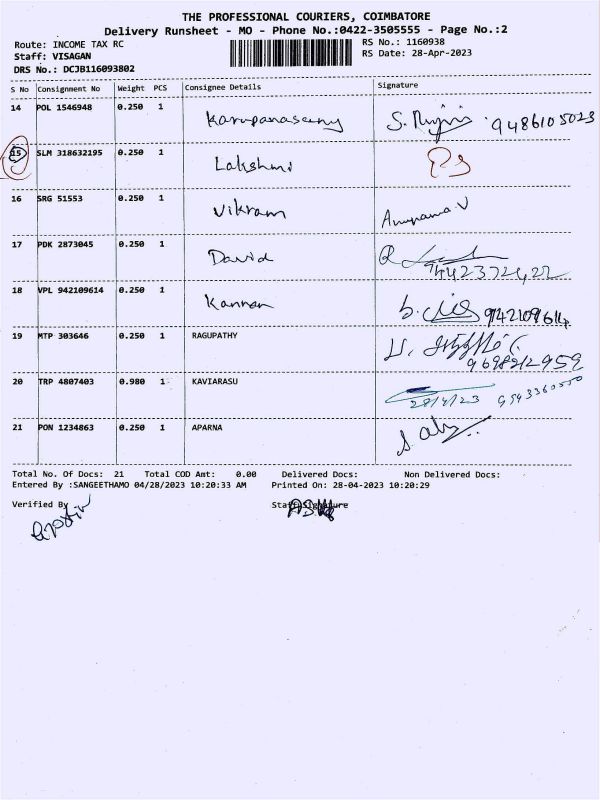 THE PROFESSIONAL COURIERS, COIMBATORE
Delivery Runsheet - MO - Phone No.:0422-3505555 - Page No.:2
Route: INCOME TAX RC RS No.: 1160938
Staff: VISAGAN RS Date: 28-Apr-2023
DRS No.: DCJB116093802
S No Consignment No Weight PCS Consignee Details Signature
14 POL 1546948 0.250 1 Karupanasamy 9486105023
15 SLM 318632195 0.250 1 Lakshmi
16 SRG 51553 0.250 1 Vikram Anupama V
17 PDK 2873045 0.250 1 David
18 VPL 942109614 0.250 1 Kannan 942109614
19 MTP 303646 0.250 1 RAGUPATHY
20 TRP 4807403 0.980 1 KAVIARASU 28/4/23
21 PON 1234863 0.250 1 APARNA
Total No. Of Docs: 21 Total COD Amt: 0.00 Delivered Docs: Non Delivered Docs:
Entered By :SANGEETHAMO 04/28/2023 10:20:33 AM Printed On: 28-04-2023 10:20:29
Verified By Staff Signature